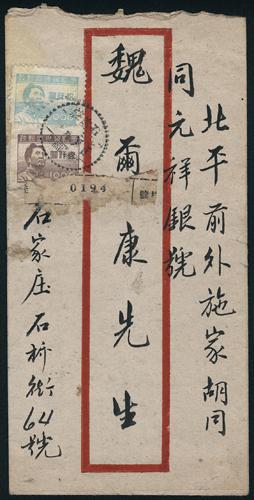 北平前外施家胡同
同元祥銀號
魏爾康先生
石家庄石桥街64號
0194